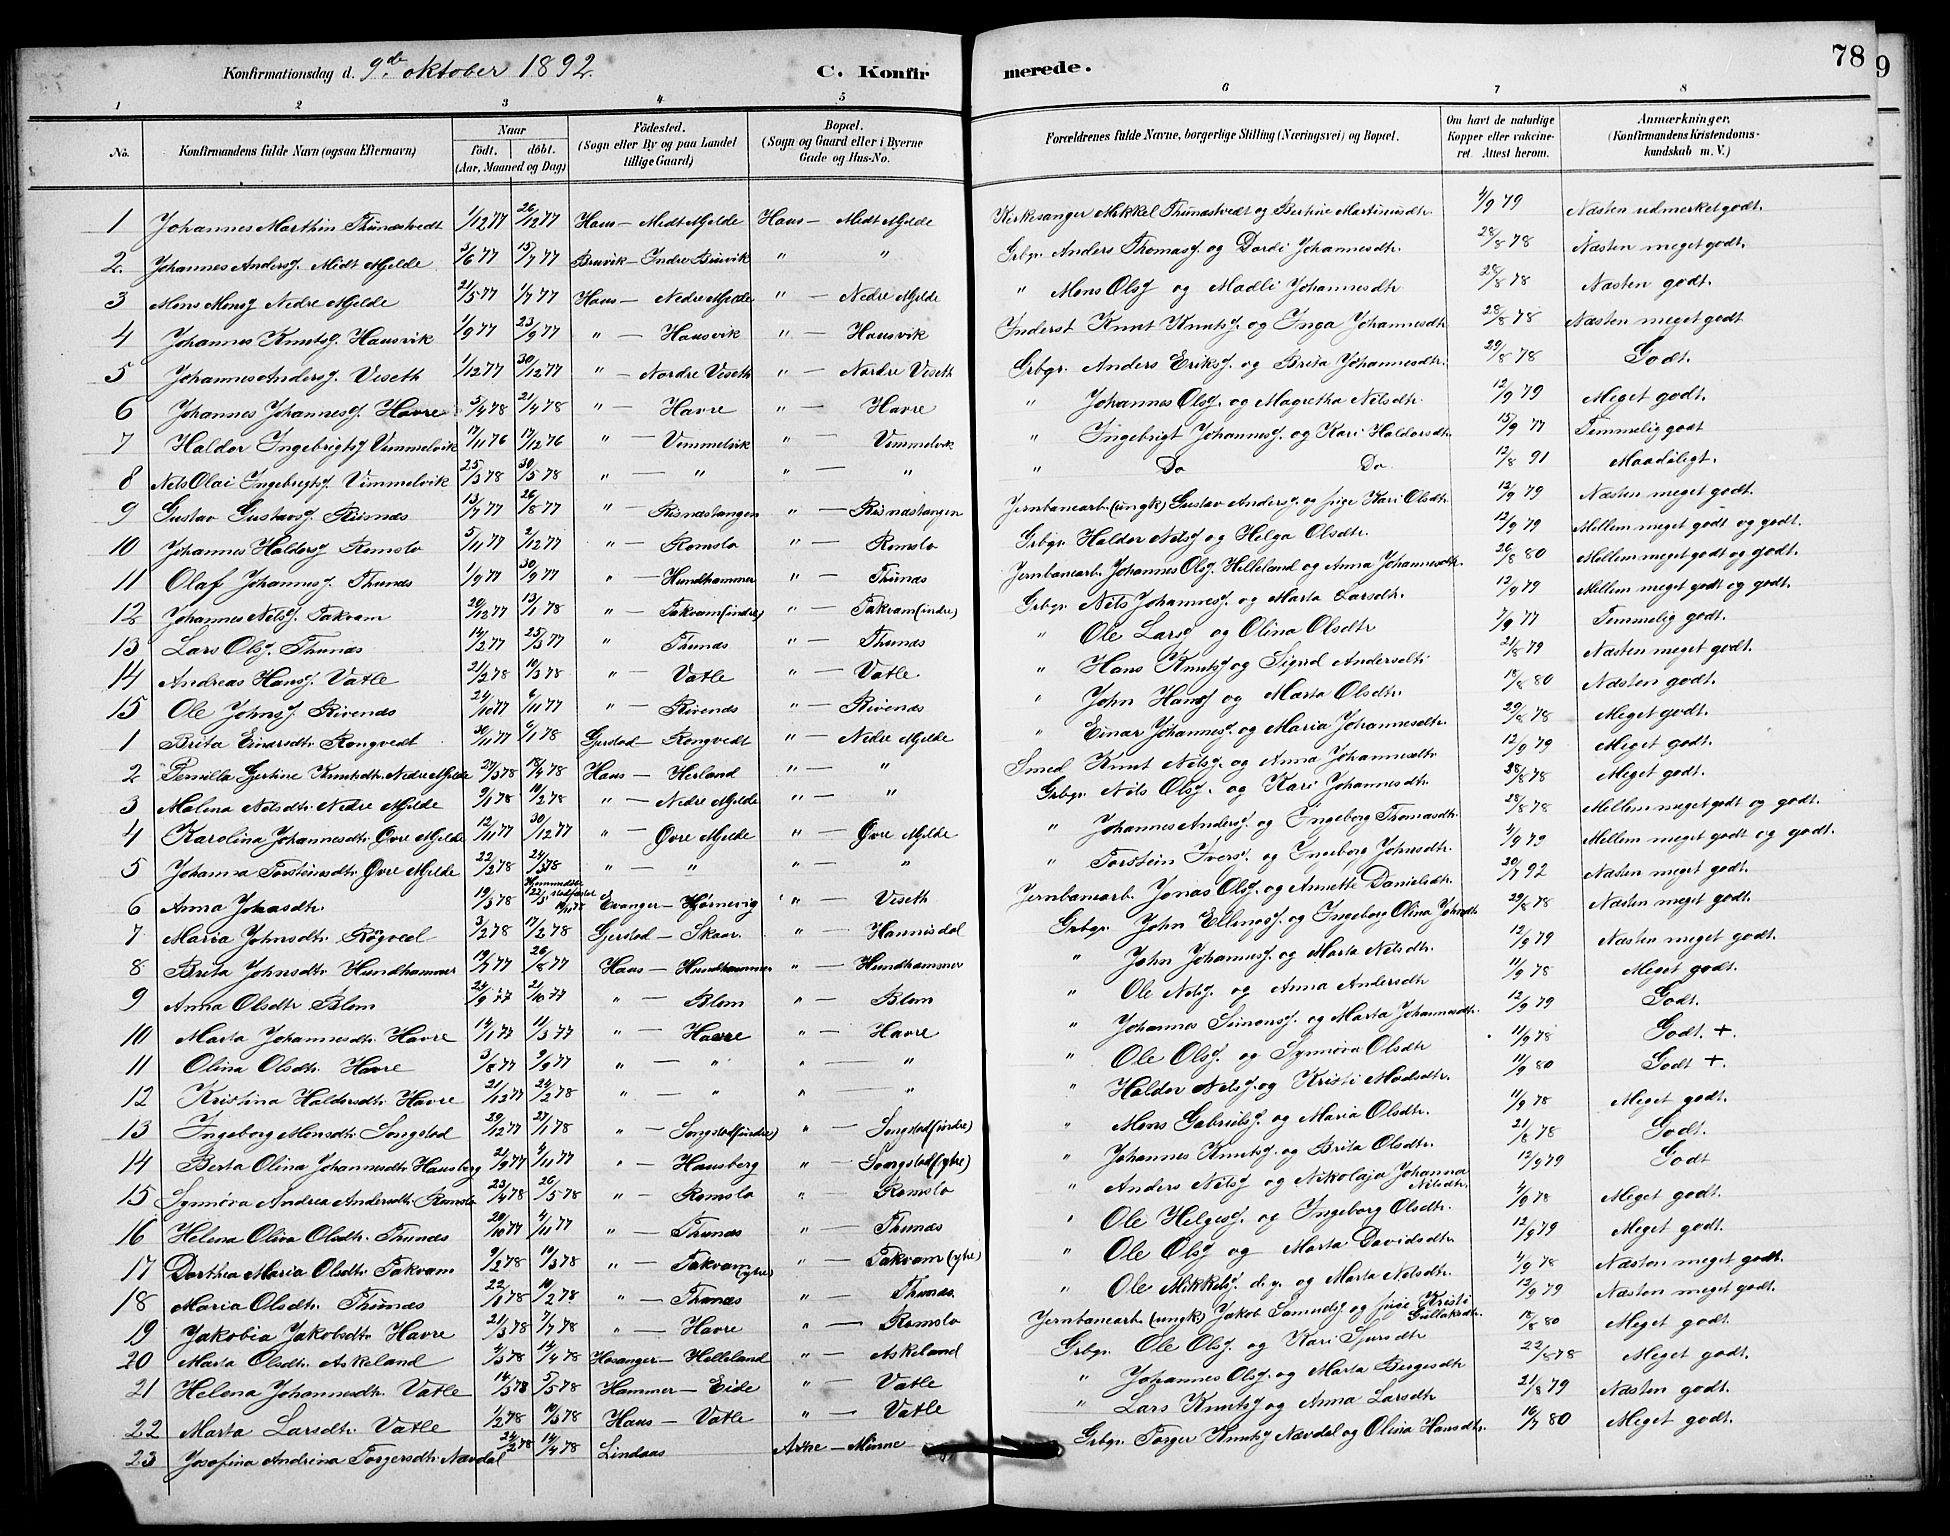 Konfirmationsdag d. 9de oktober 1892. C. Konfirmerede. 78
9
1 2 3 4 5 6 7 8
No. Konfirmandens fulde Navn (ogsaa Efternavn) Naar födt. döbt. (Aar, Maaned og Dag) Födested. (Sogn eller By og paa Landet tillige Gaard) Bopæl. (Sogn og Gaard eller i Byerne Gade og Hus-No. Forældrenes fulde Navne, borgerlige Stilling (Næringsvei) og Bopæl. Om havt de naturlige Kopper eller vakcineret. Attest herom. Anmærkninger. (Konfirmandens Kristendomskundskab m. V.)
1 Johannes Marthin Thunestvedt 1/12 77 26/12 77 Haus — Midt Mjelde Haus — Midt Mjelde Kirkesanger Mikkel Thunestvedt og Bertine Martinusdtr. 4/9 79 Næsten udmerket godt.
2. Johannes Andersj. Midt Mjelde 3/6 77 15/7 77 Bruvik — Indre Bruvik " " Grbgr. Anders Thomasj og Dordi Johannesdtr. 28/8 78 Næsten meget godt.
3 Mons Monsj Nedre Mjelde 21/5 77 1/7 77 Haus — Nedre Mjelde " — Nedre Mjelde " Mons Olsj og Madli Johannesdtr 28/8 78 Næsten godt.
4 Johannes Knutsj. Hausvik 1/9 77 23/9 77 " — Hausvik " — Hausvik Inderst Knut Knutsj. og Inga Johannesdtr 28/8 78 Næsten meget godt
5 Johannes Andersj. Viseth 1/12 77 30/12 77 " — Nordre Viseth " — Nordre Viseth Grbgr. Anders Eriksj. og Brita Johannesdtr. 29/8 78 Godt.
6 Johannes Johannesj Havre 3/4 78 21/4 78 " — Havre " — Havre " Johannes Olsj. og Magretha Nelsdtr. 12/9 79 Meget godt.
7 Haldor Ingebrigtsj Vemmelvik 17/11 76 17/12 76 " — Vemmelvik " — Vemmelvik " Ingebrigt Johannesj. og Kari Haldorsdtr. 15/9 77 Temmelig godt
8 Nels Olai Ingebrigtsj Vemmelvik 25/3 78 30/5 78 " — " " — " " Do Do. 12/8 91 Maadeligt.
9 Gustav Gustavsj. Risnæs 13/7 77 26/8 77 " — Risnæstangen " — Risnæstangen Jernbanearb. (ungk) Gustav Andersj og pige Kari Olsdtr. 12/9 79 Næsten meget godt.
10 Johannes Haldorsj Romslo 5/11 77 2/12 77 " — Romslo " — Romslo Grbgr. Haldor Nelsj og Helga Olsdtr. 12/9 79 Mellem meget godt og godt.
11 Olaf Johannesj. Thunes 1/9 77 30/9 77 " — Hundhammer " — Thunæs Jernbanearb. Johannes Olsj. Helleland og Anna Johannesdtr. 26/8 80 Mellem meget godt og godt.
12 Johannes Nelsj. Takvam 20/12 77 13/1 78 " — Takvam (indre) " — Takvam (indre) Grbgr. Nels Johannesj. og Marta Larsdtr. 12/9 79 Mellem meget godt og godt.
13 Lars Olsj. Thunæs 14/2 77 25/3 77 " Thunæs " — Thunæs " Ole Larsj og Olina Olsdtr 7/9 77 Temmelig godt.
14 Andreas Hansj. Vatle 21/2 78 10/3 78 " — Vatle " — Vatle. " Hans Knutsj og Signd Andersdtr 21/8 79 Næsten meget godt.
15 Ole Johnsj. Rivenæs 24/10 77 6/11 77 " — Rivenæs " — Rivenæs " John Hansj og Marta Olsdtr. 17/8 80 Næsten godt.
1 Brita Einarsdtr. Rongvedt 30/11 77 6/1 78 Gjerstad — Rongvedt " — Nedre Mjelde " Einar Johannesj. og Maria Johannesdtr. 29/8 78 Meget godt.
2 Pernilla Gertine Knutsdtr. Nedre Mjelde 27/3 78 18/4 78 Haus — Herland " — " Smed Knut Nelsj. og Anna Johannesdtr 12/9 79 Meget godt.
3 Malena Nelsdtr. Nedre Mjelde 9/1 78 10/2 78 " — Nedre Mjelde " — " Grbgr. Nels Olsj. og Kari Johannesdtr. 28/8 78 Meget godt.
4 Karolina Johannesdtr. Øvre Mjelde 12/11 77 30/12 77 " — Øvre Mjelde " — Øvre Mjelde " Johannes Andersj. og Ingeborg Thomasdtr. 28/8 78 Mellem meget godt og godt.
5 Johanna Torsteinsdtr Øvre Mjelde 22/2 78 24/3 78 " — " " — " " Torstein Iversj. og Ingeborg Johnsdtr. 4/9 79 Mellem meget godt og godt.
6 Anna Jonasdtr. 19/3 78 Hjemmedøbt 22/3 Evanger — Hjørnevig " — Viseth Jernbanearb. Jonas Olsj. og Annette Danielsdtr. 20/7 92 Næsten meget godt.
7 Maria Johnsdtr. Røgved 3/2 78 17/2 78 Gjerstad — Skaar. " — Hannisdal Grbgr. John Ellingsj. og Ingeborg Olina Johnsdtr 29/8 78 Næsten meget godt.
8 Brita Johnsdtr. Hundhammer 19/7 77 26/8 77 Haus — Hundhammer " — Hundhammer " John Johannesj. og Marta Nelsdtr. 12/9 79 Næsten meget godt.
9 Anna Olsdtr Blom 24/9 77 21/10 77 " — Blom " — Blom " Ole Nelsj. og Anna Andersdtr 11/9 78 Meget godt.
10 Marta Johannesdtr. Havre 14/1 77 11/3 77 " — Havre " — Havre " Johannes Simonsj. og Marta Johannesdtr. 12/9 79 Godt.
11 Olina Olsdtr. Havre 3/8 77 9/9 77 " — " " — " " Ole Olsj. og Synnøva Olsdtr 11/9 78 Godt. +
12 Kristina Haldorsdtr. Havre 21/12 77 24/2 78 " — " " — " " Haldor Nelsj. og Kristi Madsdtr. 11/9 80 Godt +.
13 Ingeborg Monsdtr. Songstad 29/12 77 27/1 78 " — Songstad (indre) " — Songstad (indre) " Mons Gabrielsj. og Maria Olsdtr. 11/9 78 Meget godt.
14 Berta Olina Johannesdtr. Hausberg 2/9 77 4/11 77 " — Hausberg " — Songstad (ytre) " Johannes Knutsj. og Brita Olsdtr. 21/8 78 Godt.
15 Synnøva Andrea Andersdtr. Romslo 23/4 78 26/5 78 " — Romslo " — Romslo " Anders Nelsj og Nikolaja Johanna Nelsdtr. 12/9 79 Godt
16 Helena Oliva Olsdtr. Thunæs 20/10 77 4/11 77 " — Thunæs " — Thunæs " Ole Helgesj. og Ingeborg Olsdtr. 4/9 78 Meget godt.
17 Dorthea Maria Olsdtr. Takvam 9/2 78 10/3 78 " — Takvam (ytre) " — Takvam (ytre) " Ole Olsj og Marta Davidsdtr. 12/9 79 Meget godt.
18 Maria Olsdtr. Thunæs 22/1 78 10/2 78 " — Thunæs " — Thunæs. " Ole Mikkelsj. d. y. og Marta Nelsdtr. 4/9 78 Næsten meget godt.
19 Jakobia Jakobsdtr. Havre 21/3 78 7/7 78 " — Havre " — Romslo Jernbanearb. (ungk) Jakob Samuelsj og pige Kristi Gullaksdtr. 12/9 79 Næsten meget godt.
20 Marta Olsdtr. Askeland 4/3 78 14/4 78 Hosanger — Helleland " — Askeland Grbgr. Ole Olsj. og Kari Sjursdtr 18/8 80 Meget godt.
21 Helena Johannesdtr. Vatle 14/3 78 5/5 78 Hammer — Eide " — Vatle " Johannes Olsj. og Marta Børgesdtr 22/8 78 Meget godt.
22 Marta Larsdtr. Vatle 1/2 78 10/3 78 Haus — Vatle " — Vatle " Lars Knutsj og Anna Larsdtr 21/8 79 Næsten godt.
23 Josefina Andrina Torgersdtr. Nævdal 24/2 78 14/4 78 Lindaas Arne — Minne Grbgr. Torger Knutsj Nævdal og Olina Hansdtr. 16/7 80 Meget godt.